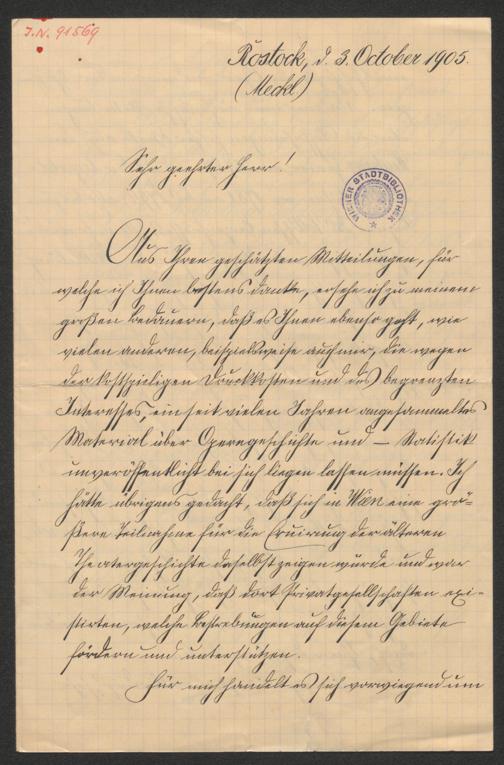 J.N. 91569
Rostock, d. 3. October 1905.
(Meckl.)
Sehr geehrter Herr!
WIENER STADTBIBLIOTHEK
Aus Ihren geschätzten Mitteilungen, für
welche ich Ihnen bestens danke, ersehe ich zu meinem
großen Bedauern, daß es Ihnen ebenso geht, wie
vielen anderen, beispielsweise auch mir, die wegen
der kostspieligen Druckkosten und des begrenzten
Interesses, ein seit vielen Jahren angesammeltes
Material über Operngeschichte und – Statistik
unveröffentlicht bei sich liegen lassen müssen. Ich
hätte übrigens gedacht, daß sich in Wien eine grö-
ßere Teilnahme für die Eruirung der älteren
Theatergeschichte daselbst zeigen würde und war
der Meinung, daß dort Privatgesellschaften exi-
stirten, welche Bestrebungen auf diesem Gebiete
fördern und unterstützen.
Für mich handelt es sich vorwiegend um